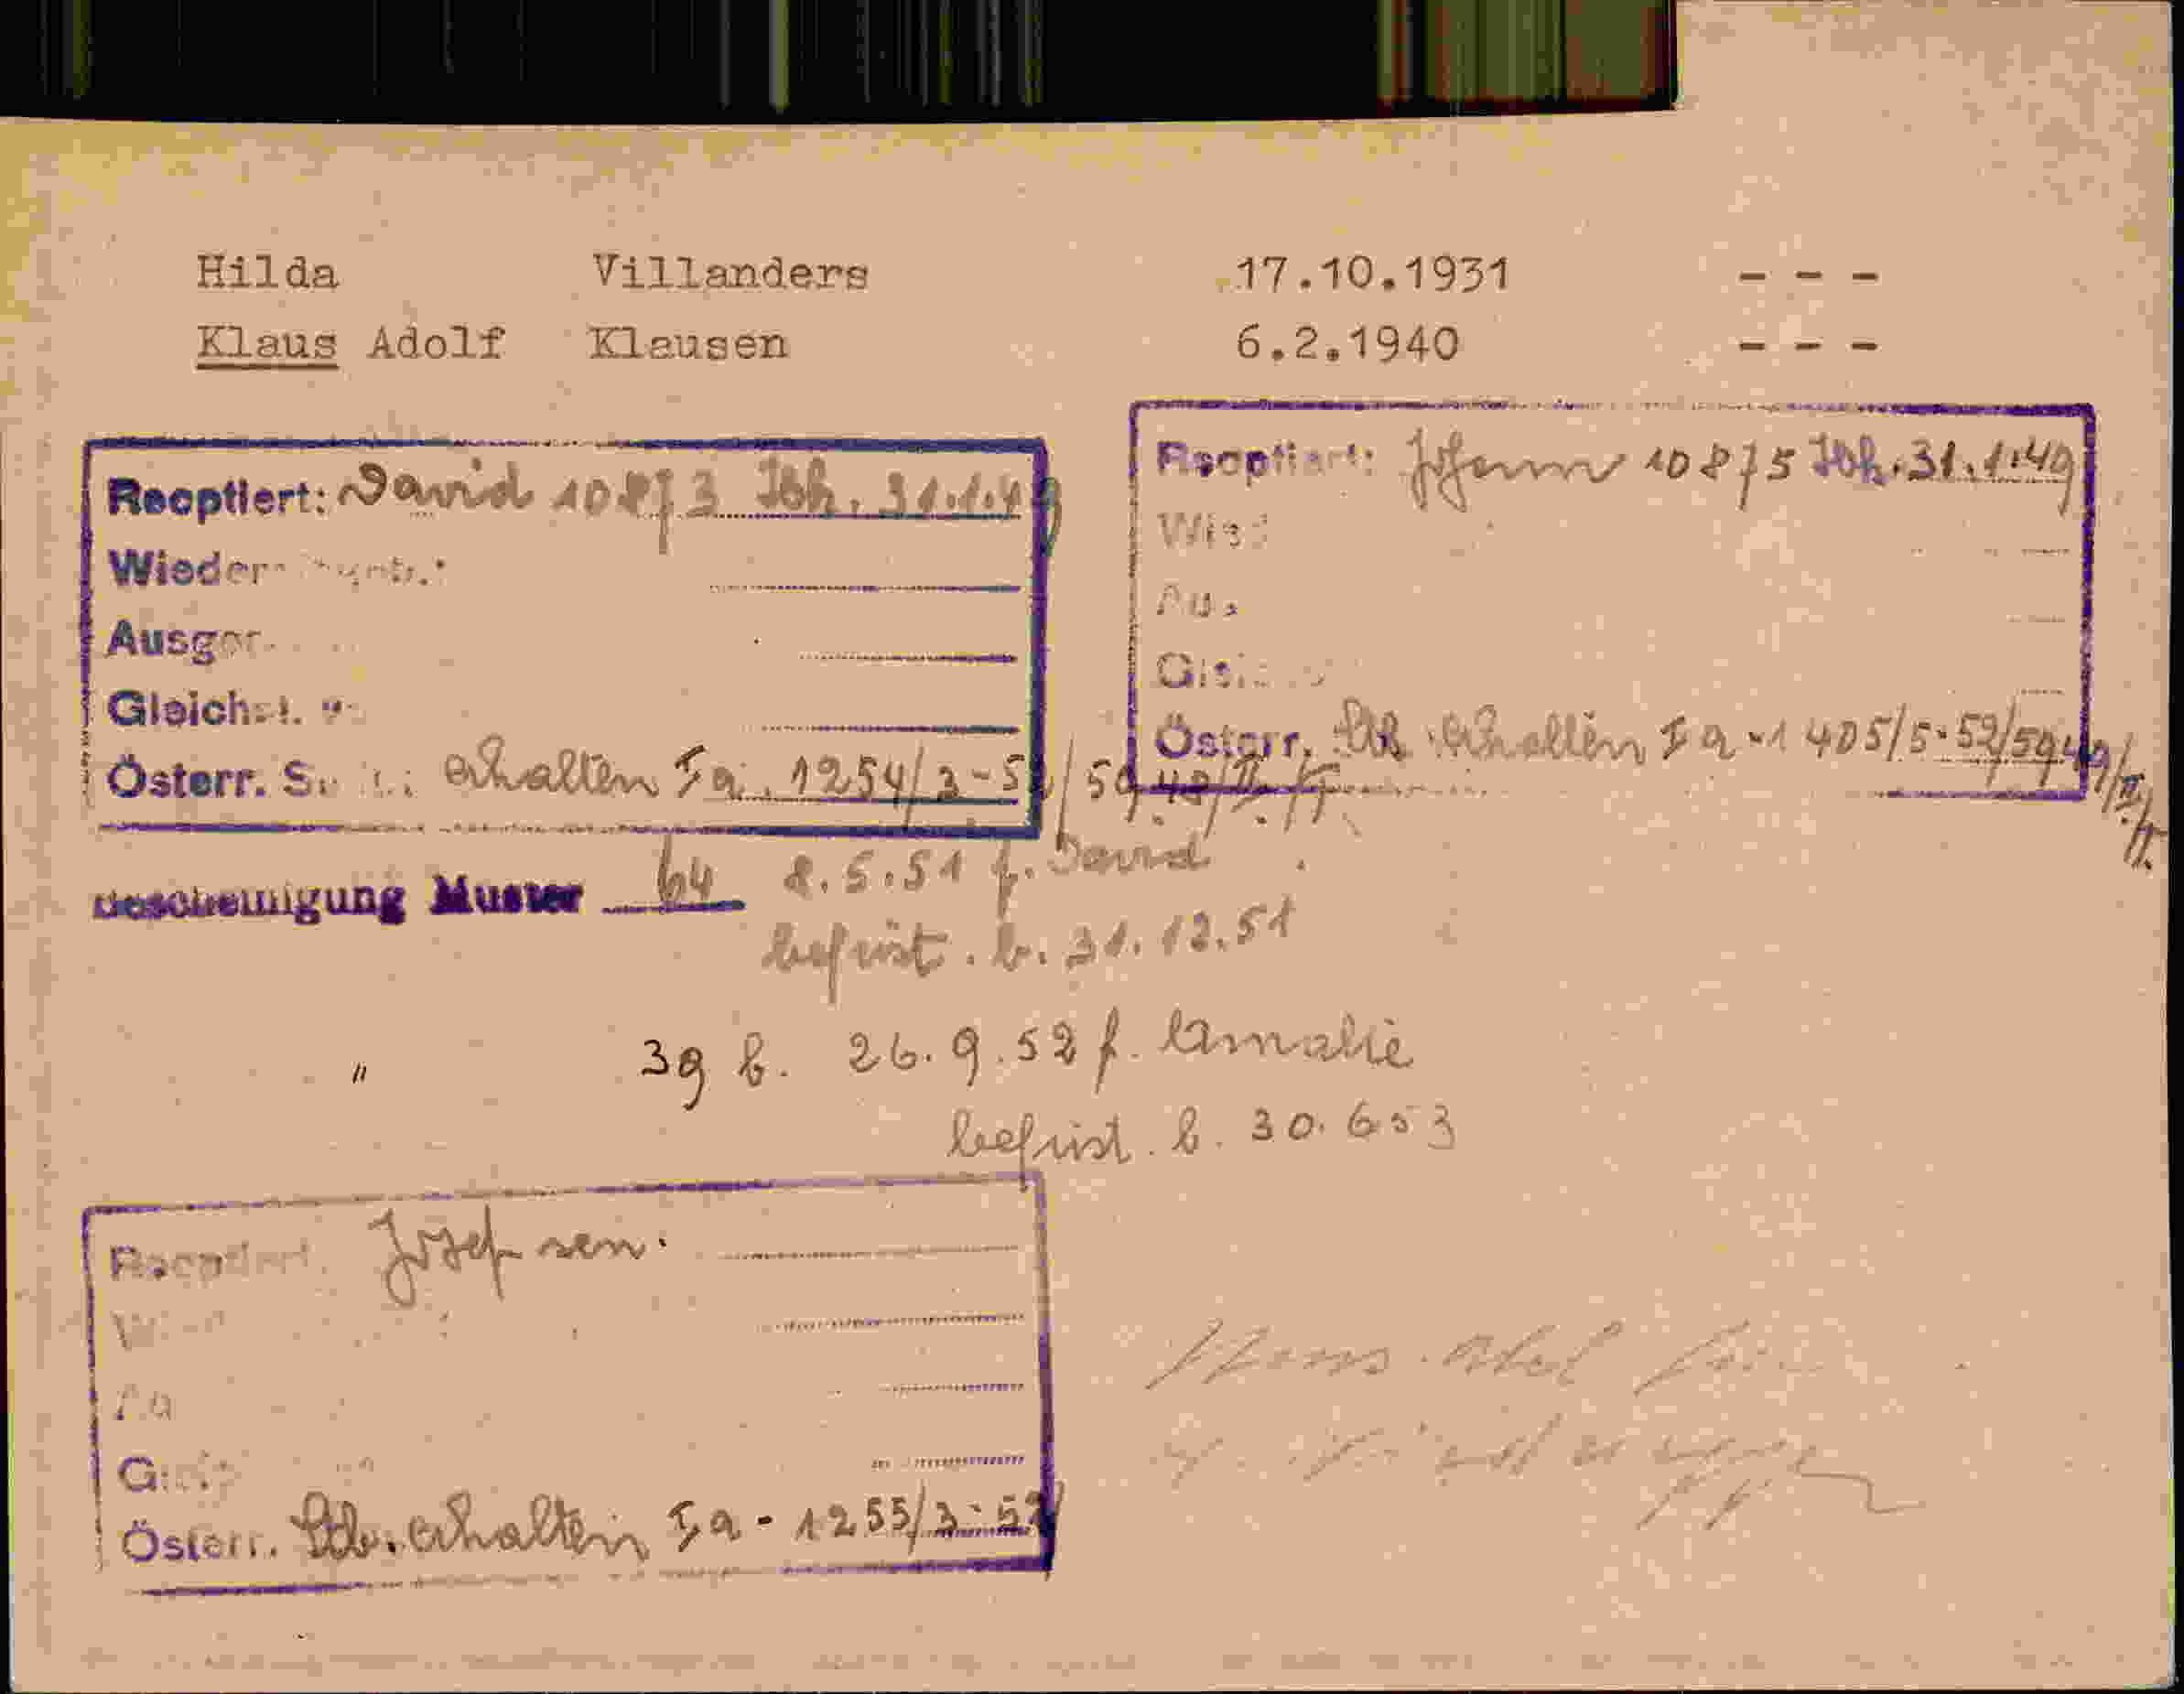 Hilda Villanders 17.10.1931 - - -
Klaus Adolf Klausen 6.2.1940 - - -
Reoptiert: David 10873 Ibk. 31.1.49
Wieder
Ausger
Gleichst.
Österr. erhalten Ia. 1254/3-52/59.49/II./
Reoptiert: Johann 10875 Ibk. 31.1.49
Wied
Aus
Österr. Stb. erhalten Ia-1405/5-52/59.49/II/
Bescheinigung Muster 64 2.5.51 f. David
befrist. b. 31.12.51
" 39 b. 26.9.52 f. Amalie
befrist. b. 30.6 53
Reoptiert Josef sen.
Österr. Stb. erhalten Ia - 1255/3-52/